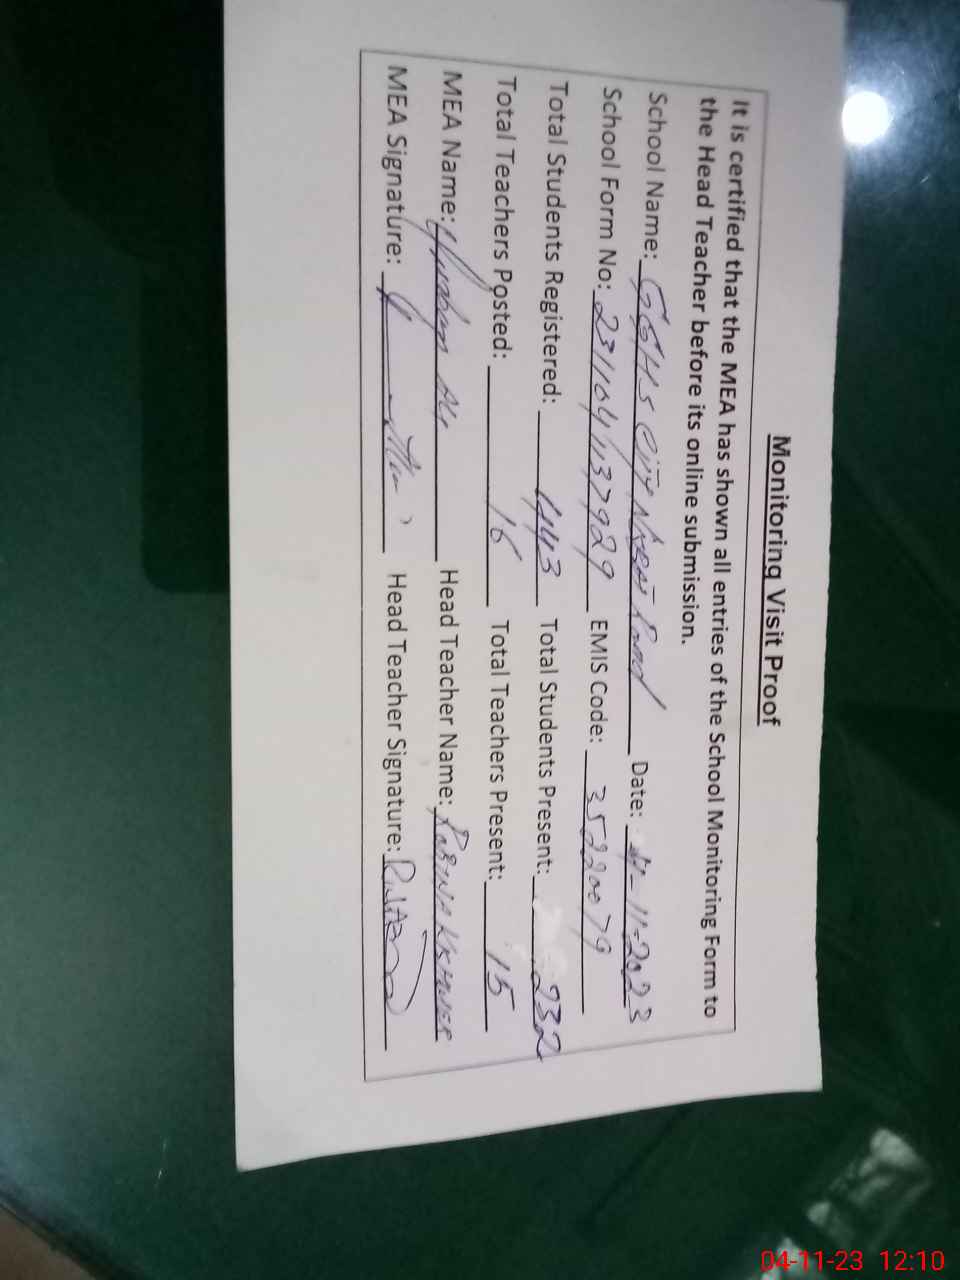 Monitoring Visit Proof
It is certified that the MEA has shown all entries of the School Monitoring Form to
the Head Teacher before its online submission.
School Name: GGHS City Road Date: 4-11-2023
School Form No: EMIS Code: 35220079
Total Students Registered: 443 Total Students Present: 232
Total Teachers Posted: 16 Total Teachers Present: 15
MEA Name: Ali Head Teacher Name:
MEA Signature: Head Teacher Signature:
04-11-23 12:10